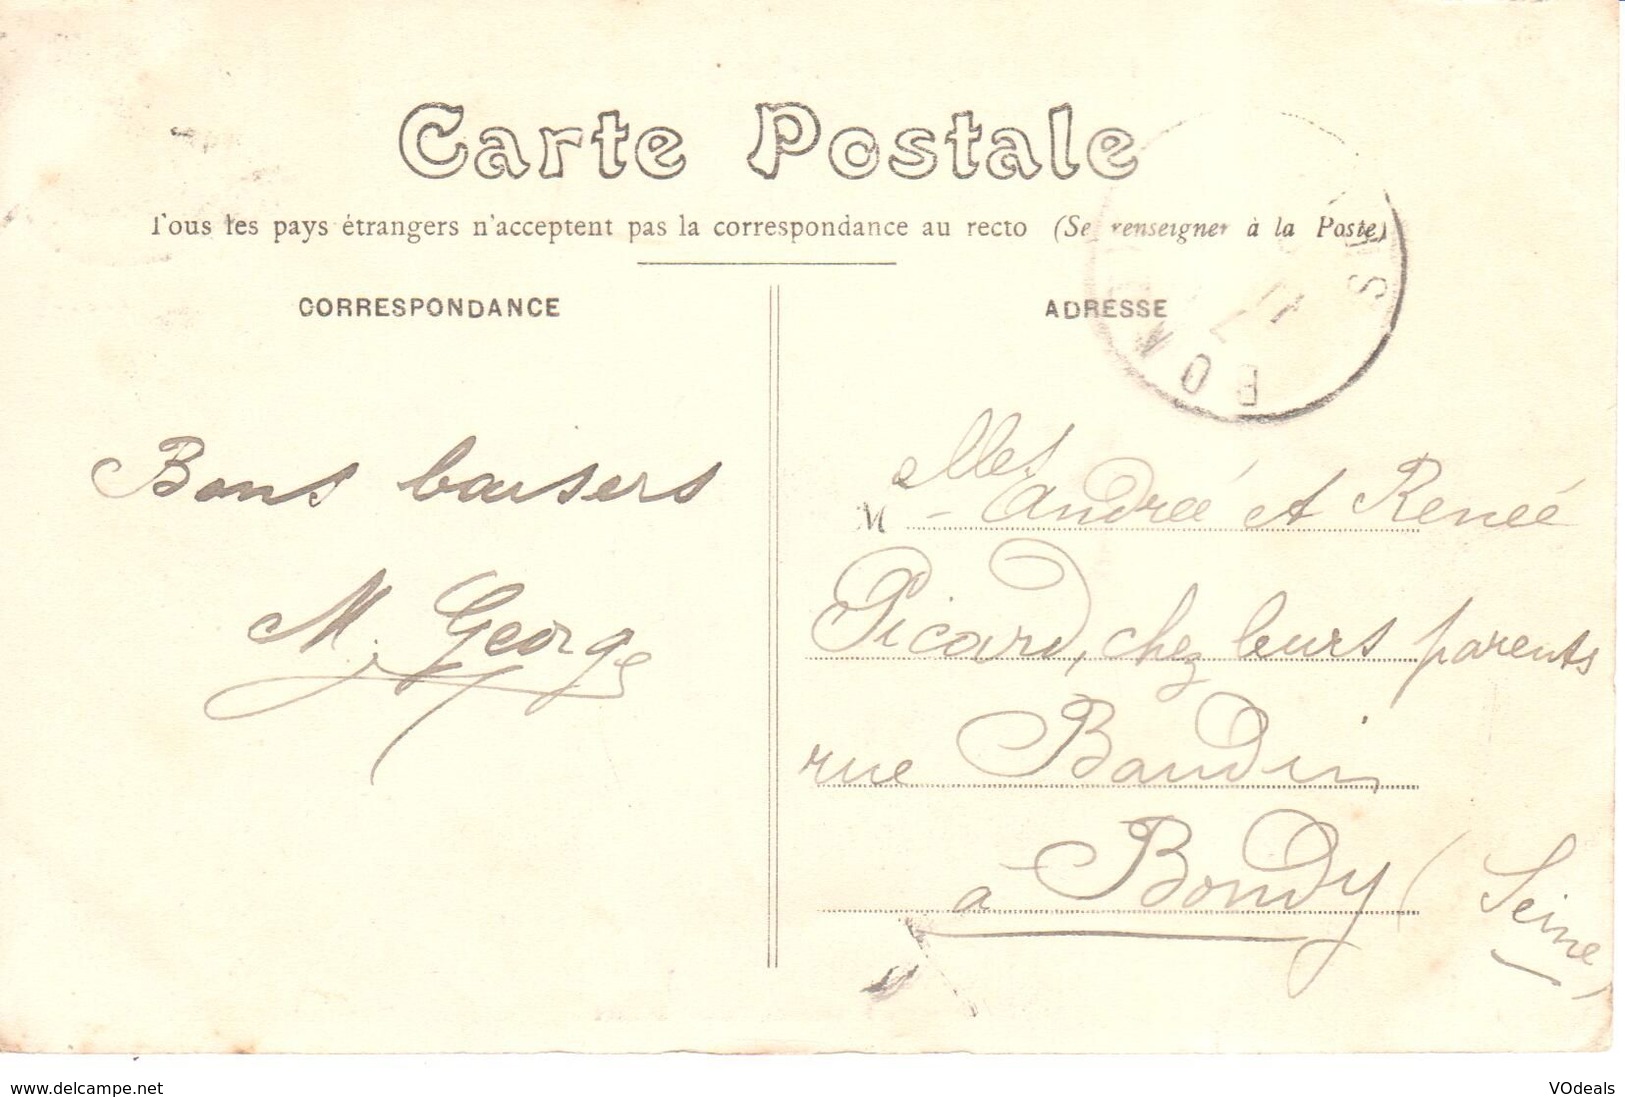 Carte Postale
Tous les pays étrangers n'acceptent pas la correspondance au recto (Se renseigner à la Poste)
CORRESPONDANCE
ADRESSE
Bons baisers
M. George
M elles Andréé et Renéé
Picard, chez leurs parents
rue Baudin
à Bondy (Seine)
www.delcampe.net
VOdeals